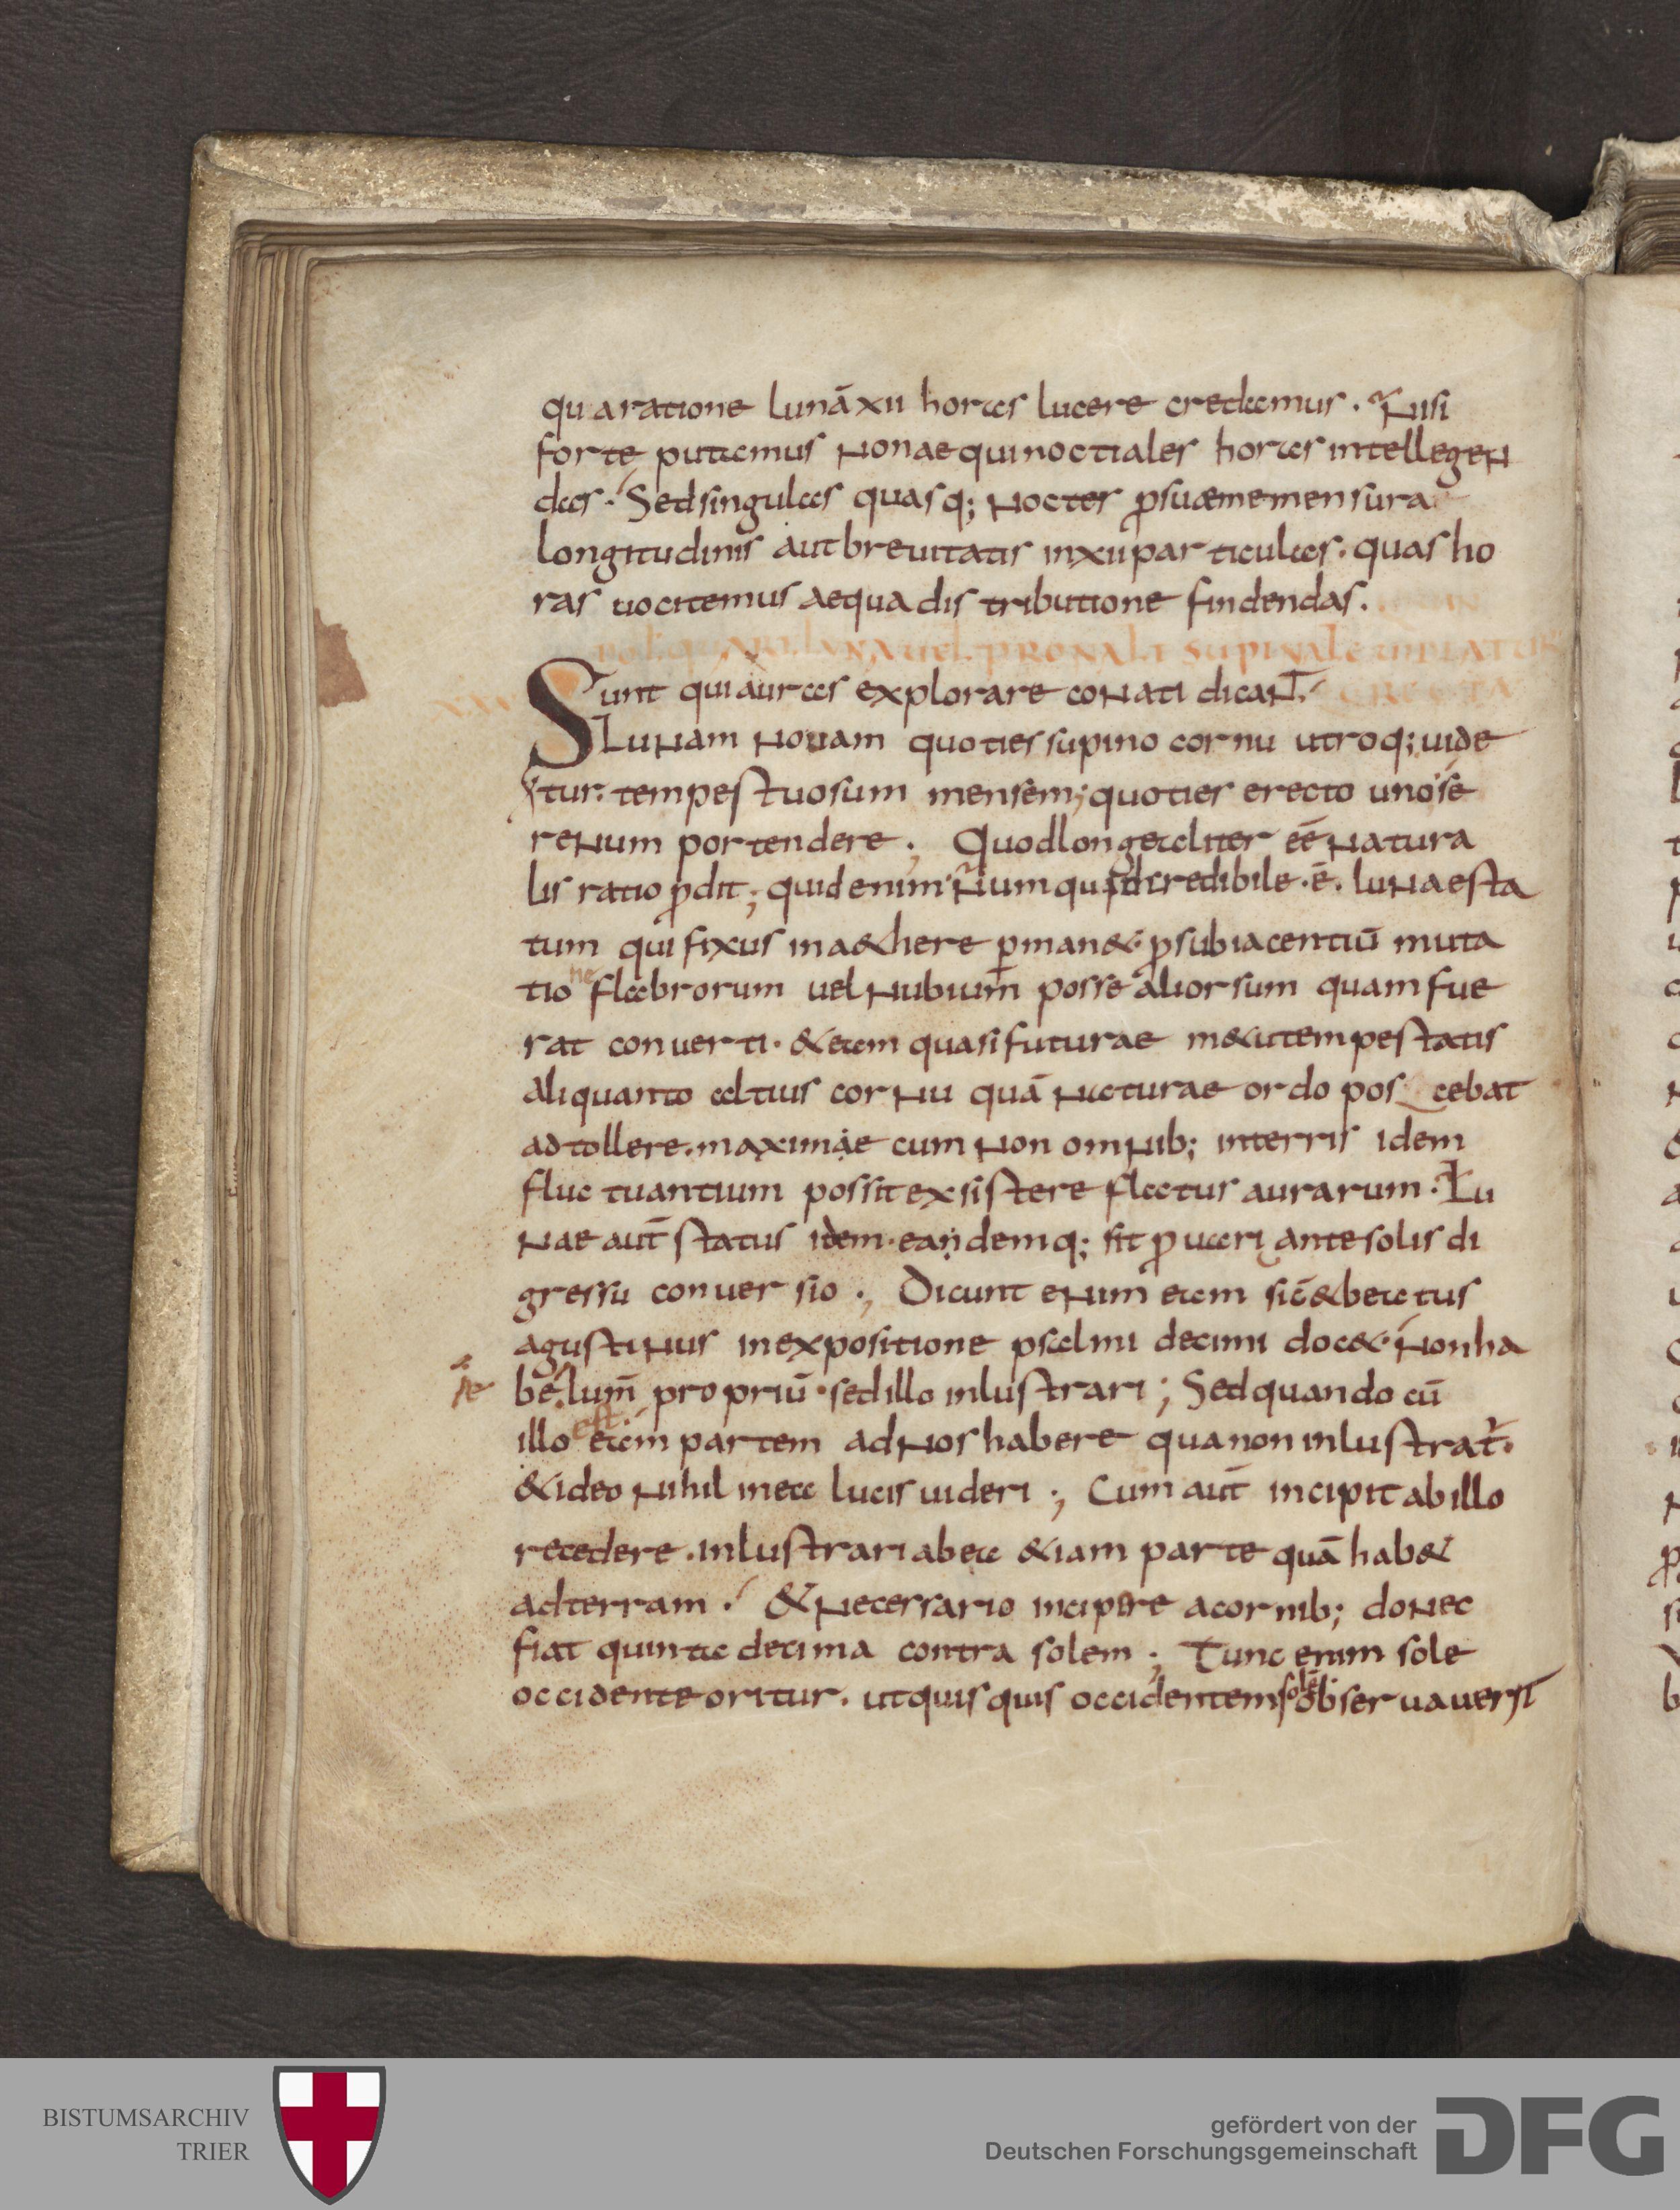 qua ratione lunā xii horas lucere credamus. Nisi
forte putamus non aequinoctiales horas intellegen
das. Sed singulas quasq; noctes p suae me mensura
longitudinis aut breuitatis in xii particulas. quas ho
ras uocitemus aequa distributione findendas.
luna uel prona uel supina
Sunt qui auras explorare conati dicant.
Lunam nouam quoties supino cornu utroq; uide
tur. tempestuosum mensem; quoties erecto uno se
renum portendere; Quod longe aliter eē natura
lis ratio pdit; quid enim Nium quid credibile .ē. lunae sta
tum qui fixus in a&here pman&. p subiacentiū muta
tione flabrorum uel nubium posse aliorsum quam fue
rat conuerti. & eam quasi futurae m&u tempestatis
aliquanto altius cornu quā naturae ordo pos cebat
adtollere. maximae cum non omnib; in terris idem
fluctuantium possit exsistere flatus aurarum. Lu
nae aut̄ status idem. eandemq; sit p uari ante solis di
gressu conuersio; Dicunt enim eam sic̄ & beatus
agustinus in expositione psalmi decimi doc&. non ha
be lum̄ propriū. sed illo inlustrari; Sed quando cū
illo est. eam partem ad nos habere qua non inlustrat̄.
& ideo nihil in ea lucis uideri; Cum aut̄ incipit ab illo
recedere. inlustrari ab ea &iam parte quā hab&
ad terram. & necessario incipere a cornib; donec
fiat quinta decima contra solem; Tunc enim sole
occidente oritur. ut quisquis occidentem solē obseruauerit
BISTUMSARCHIV
TRIER
gefördert von der
Deutschen Forschungsgemeinschaft
DFG